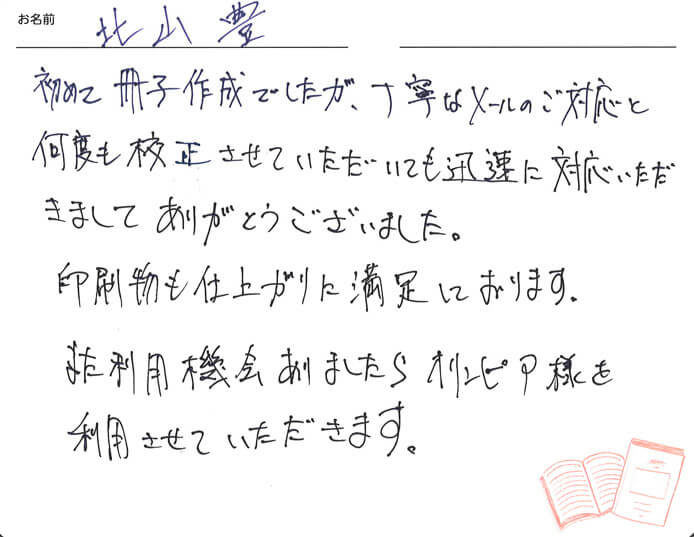 お名前
北山豊
初めて冊子作成でしたが、丁寧なメールのご対応と
何度も校正させていただいても迅速に対応いただ
きましてありがとうございました。
印刷物も仕上がりに満足しております。
また利用機会ありましたらオリンピア様を
利用させていただきます。